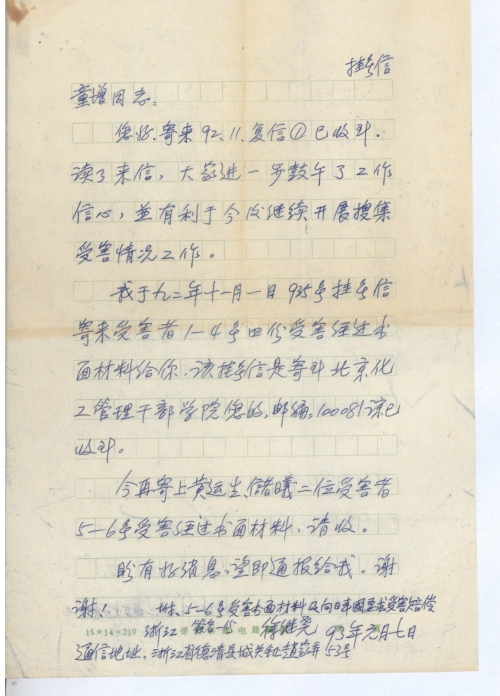 挂号信
童增同志：
您好.寄来92.11.复信①已收到.
读了来信，大家进一步鼓午了工作
信心，並有利于今后继续开展搜集
受害情况工作。
我于九二年十一月一日935号挂号信
寄来受害者1—4号四份受害经过书
面材料给你.该挂号信是寄到北京化
工管理干部学院您的,邮编:100081谅已
收到。
今再寄上黄运生,储曦二位受害者
5—6号受害经过书面材料，请收。
盼有好消息,望即通报给我。谢
谢！ 附.5—6号受害书面材料及向日本国要求受害赔偿
签名一份
15×14=210 浙江 徐继尧 93年元月七日
通信地址.浙江省德清县城关镇赵家弄53号